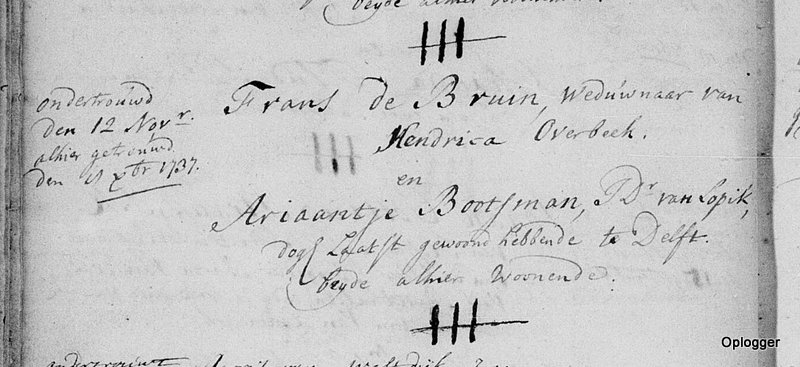 beyde alhier
ondertrouwd
den 12 Novr.
alhier getrouwd
den 1 xbr 1737.
Frans de Bruin, weduwnaar van
Hendrica Overbeek.
en
Ariaantje Bootsman, JDr van Lopik,
dog laatst gewoond hebbende te Delft.
beyde alhier woonende.
Oplogger